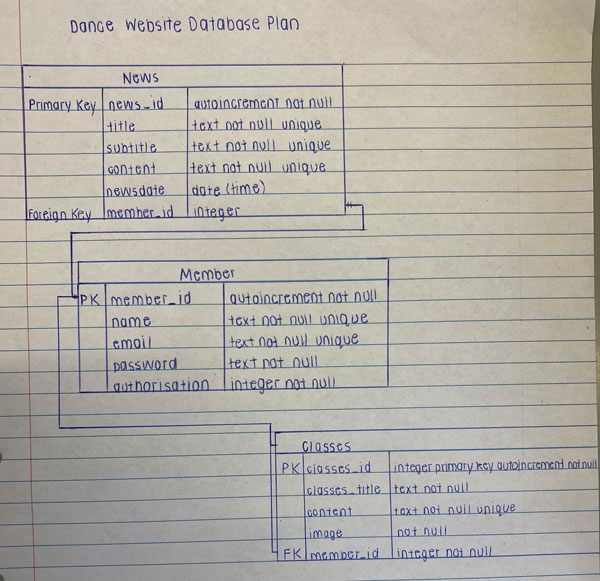 Dance Website Database Plan
News
Primary Key news_id autoincrement not null
title text not null unique
subtitle text not null unique
content text not null unique
newsdate date (time)
Foreign Key member_id integer
Member
PK member_id autoincrement not null
name text not null unique
email text not null unique
password text not null
authorisation integer not null
Classes
PK classes_id integer primary key autoincrement not null
classes_title text not null
content text not null unique
image not null
FK member_id integer not null